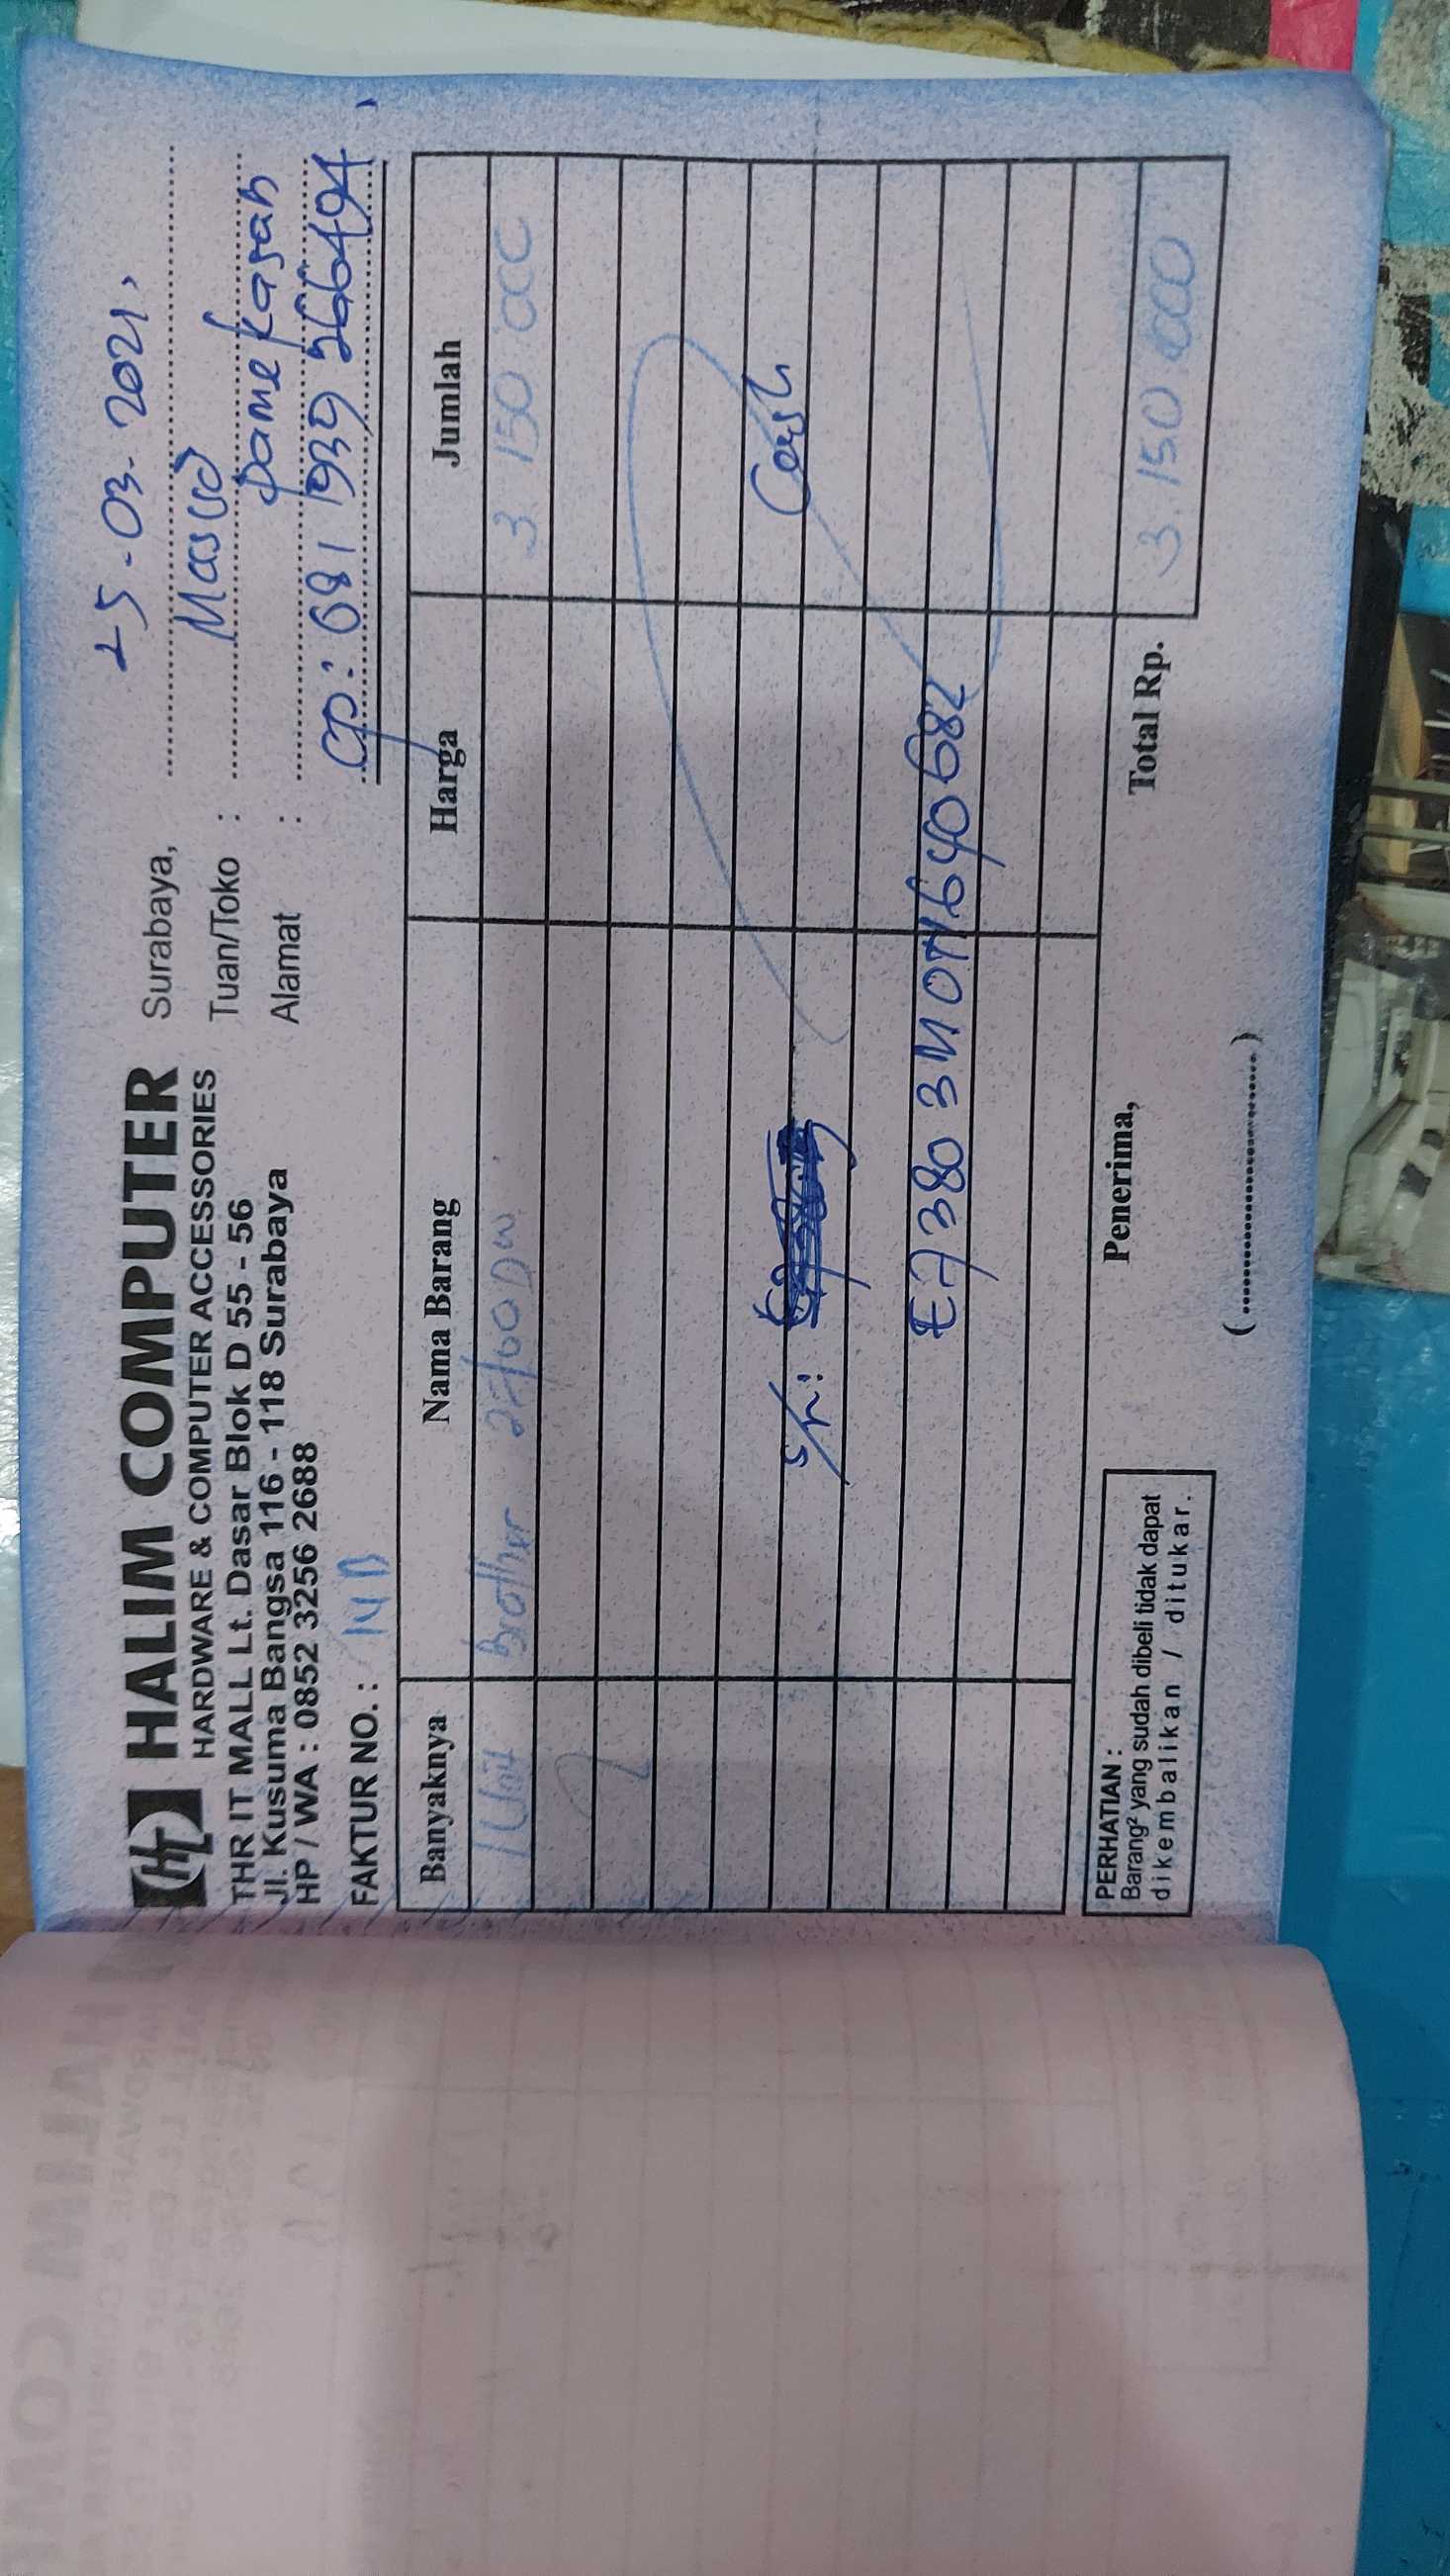 HALIM COMPUTER
HARDWARE & COMPUTER ACCESSORIES
THR IT MALL Lt. Dasar Blok D 55 - 56
Jl. Kusuma Bangsa 116 - 118 Surabaya
HP / WA : 0852 3256 2688
FAKTUR NO. :
Surabaya, 25-03-2021
Tuan/Toko : Masud
Alamat : pamekasan
CP: 081 1939 266494
Banyaknya Nama Barang Harga Jumlah
1 Unit Brother DW 3.150.000
Cash
S/N:
E73803M0N640682
Total Rp. 3.150.000
PERHATIAN :
Barang² yang sudah dibeli tidak dapat
dikembalikan / ditukar.
Penerima,
(..........................)